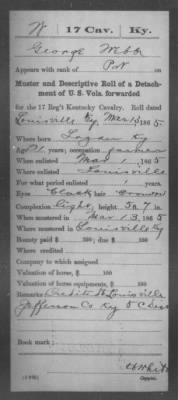 W 17 Cav. Ky.
George Webb
Appears with rank of Pvt on
Muster and Descriptive Roll of a Detach-
ment of U. S. Vols. forwarded
for the 17 Reg't Kentucky Cavalry. Roll dated
Louisville Ky Mar 13, 1865
Where born Ky
Age y'rs; occupation farmer
When enlisted Mar 1, 1865
Where enlisted Louisville
For what period enlisted 1 years
Eyes Black; hair Brown
Complexion Light; height 5 ft. 7 in.
When mustered in Mar 13, 1865
Where mustered in Louisville Ky
Bounty paid $ 100; due $ 100
Where credited
Company to which assigned
Valuation of horse, $ 100
Valuation of horse equipments, $ 100
Remarks: Credits Louisville
Jefferson Co Ky 5 C Dist
Book mark:
Copyist.